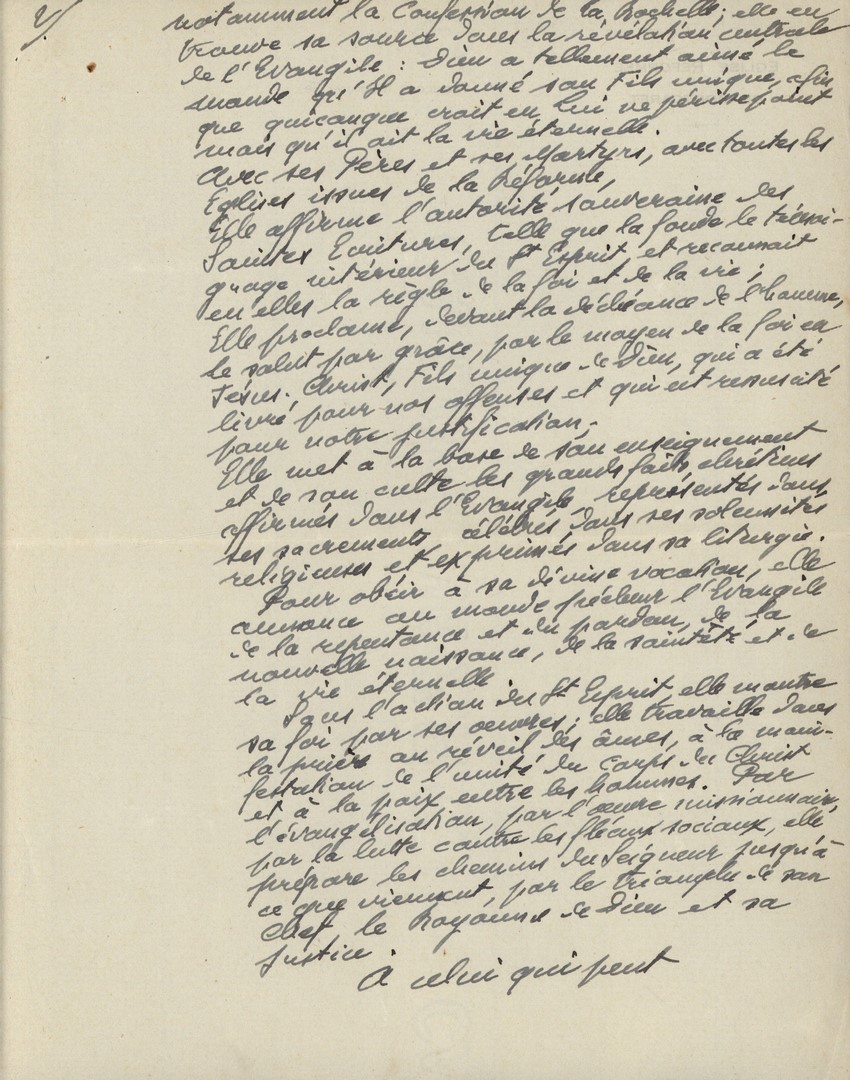 2/
notamment la Confession de la Rochelle; elle en
trouve sa source dans la révélation centrale
de l'Evangile : Dieu a tellement aimé le
monde qu'Il a donné son Fils unique, afin
que quiconque croit en Lui ne périsse point
mais qu'il ait la vie éternelle.
Avec ses Pères et ses Martyrs, avec toutes les
Eglises issues de la Réforme,
Elle affirme l'autorité souveraine des
Saintes Ecritures, telle que la fonde le témoi-
gnage intérieur du St Esprit et reconnait
en elles la règle de la foi et de la vie ;
Elle proclame, devant la déchéance de l'homme,
le salut par grâce, par le moyen de la foi en
Jésus-Christ, Fils unique de Dieu, qui a été
livré pour nos offenses et qui est ressuscité
pour notre justification ;
Elle met à la base de son enseignement
et de son culte les grands faits chrétiens
affirmés dans l'Evangile, représentés dans
ses sacrements, célébrés dans ses solennités
religieuses et exprimés dans sa liturgie.
Pour obéir à sa divine vocation, elle
annonce au monde pécheur l'Evangile
de la repentance et du pardon, de la
nouvelle naissance, de la sainteté et de
la vie éternelle
Sous l'action du St Esprit, elle montre
sa foi par ses oeuvres ; elle travaille dans
la prière au réveil des âmes, à la mani-
festation de l'unité du Corps du Christ
et à la paix entre les hommes. Par
l'évangélisation, par l'oeuvre missionnaire,
par la lutte contre les fléaux sociaux, elle
prépare les chemins du Seigneur jusqu'à
ce que viennent, par le triomphe de son
Chef, le Royaume de Dieu et sa
Justice.
A celui qui peut